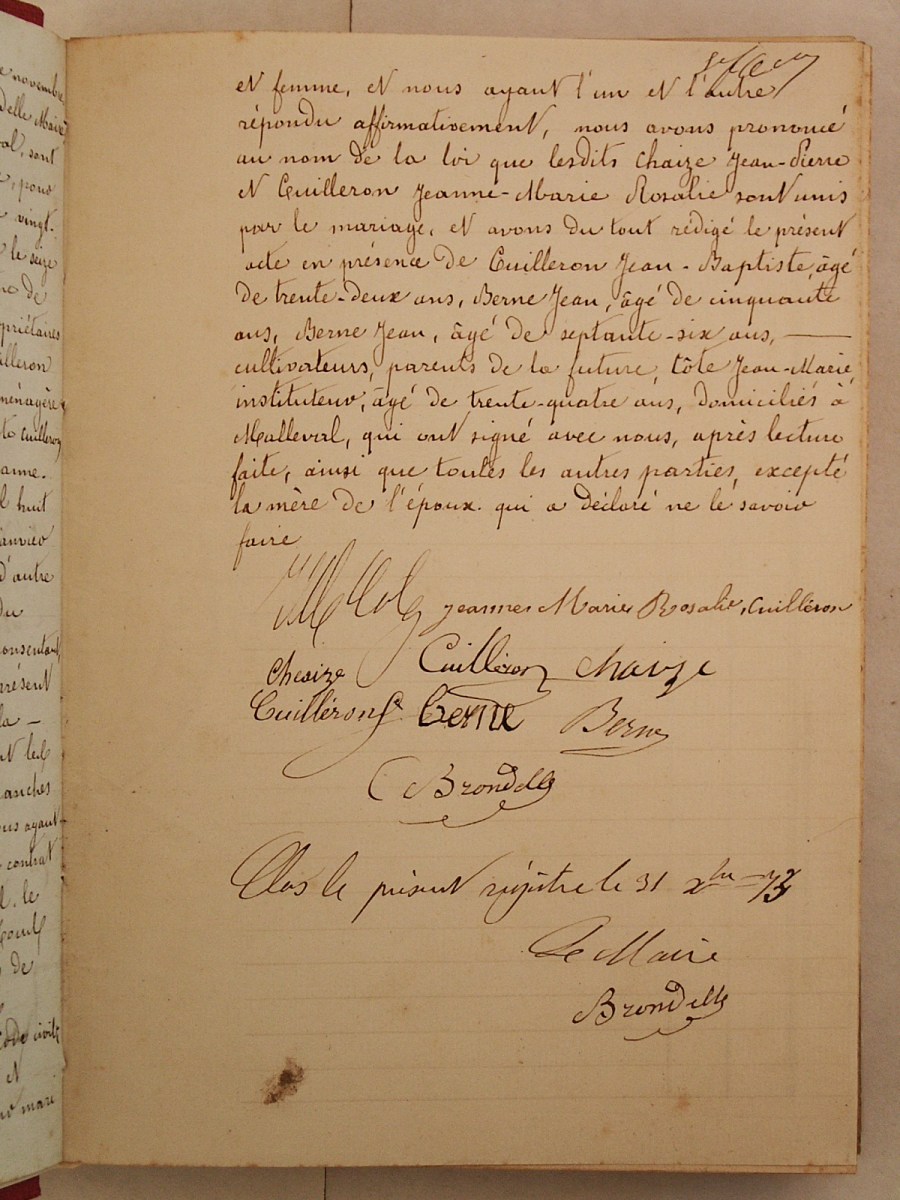 e novembre
delle Marie
val, sont
, pour
vingt-
le seize
de
priétaires
uilleron
ménagère
Cuilleron
anne.
huit
anvier
d'autre
du
consentant
présent
la —
et les
anches
ous ayant
contrat
le
de
Code civil
et
mari
et femme, et nous ayant l'un et l'autre
répondu affirmativement, nous avons prononcé
au nom de la loi que lesdits Chaize Jean-Pierre
et Cuilleron Jeanne-Marie Rosalie sont unis
par le mariage, et avons du tout rédigé le présent
acte en présence de Cuilleron Jean-Baptiste, âgé
de trente-deux ans, Berne Jean, âgé de cinquante
ans, Berne Jean, âgé de septante-six ans, —
cultivateurs, parents de la future, Côte Jean-Marie,
instituteur, âgé de trente-quatre ans, domiciliés à
Malleval, qui ont signé avec nous, après lecture
faite, ainsi que toutes les autres parties, excepté
la mère de l'époux. qui a déclaré ne le savoir
faire
Jeanne Marie Rosalie Cuilléron
Chaize Cuilléron Chaize
Cuilléron Berne Berne
Brondelle
Clos le présent régistre le 31 xbre 73
Le Maire
Brondelle